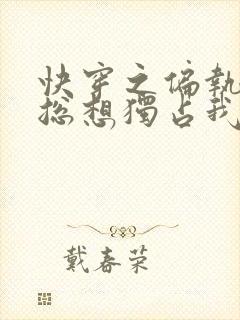 快穿之偏執
總想獨占我
戴春荣